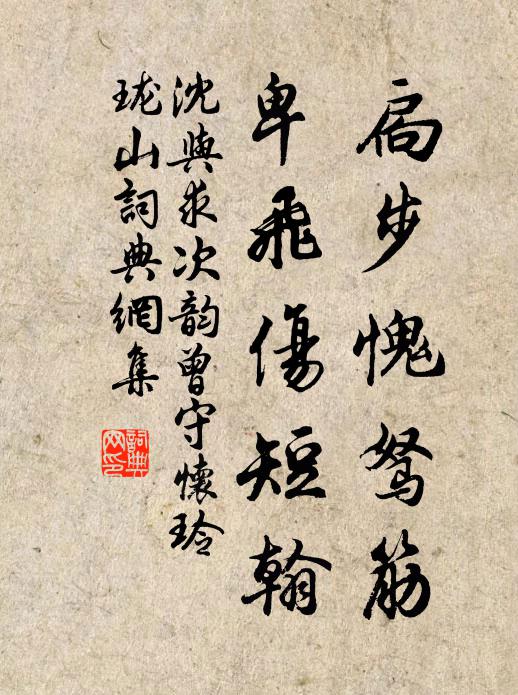 扃步愧駑筋
卑飛傷短翰
沈與求次韵曾守懷玲
瓏山詞典網集
詞典
网印